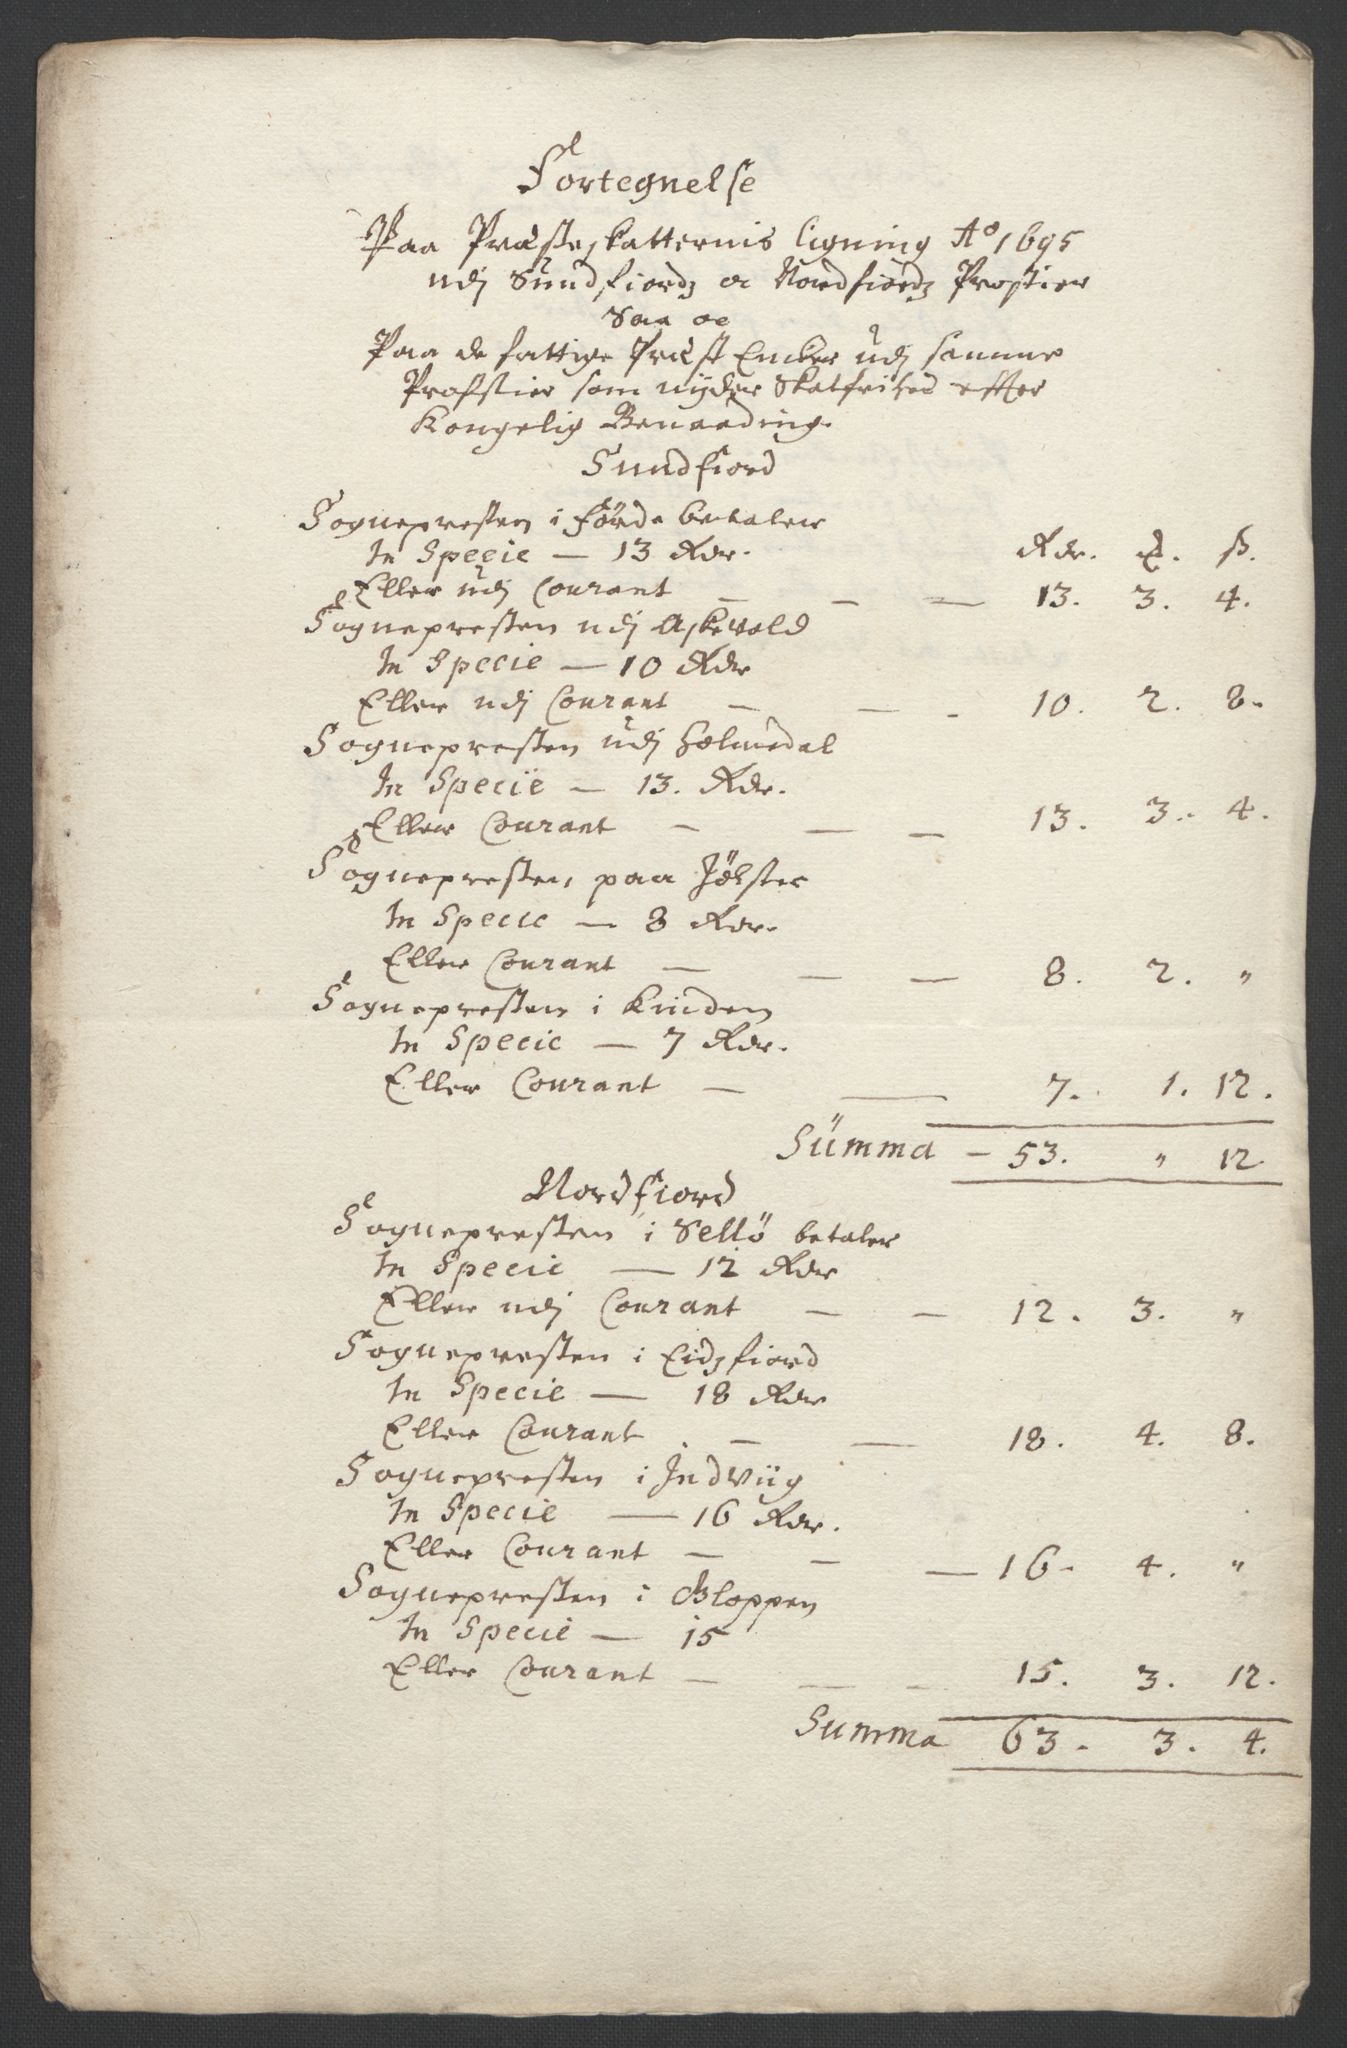 Fortegnelse
Paa Præsteskatternis ligning A° 1695
udj Sundfiordz oc Nordfiordz Prostier
Saa oc
Paa de fattige Præst Encker udj samme
Profstier som nyder Skatfrihed effter
Kongelig Benaading.
Sundfiord
Sognepresten i Førde betaler
In Specie — 13 Rdr. Rdr. ß.
Eller udj Courant — — — 13. 3. 4.
Sognepresten udj Askevold
In Specie — 10 Rdr
Eller udj Courant — — - 10. 2. 8.
Sognepresten udj Holmedal
In Specie — 13. Rdr.
Eller Courant — — — 13. 3. 4.
Sognepresten paa Jölster
In Specie — 8 Rdr.
Eller Courant — — — 8. 2. "
Sognepresten i Kinden
In Specie — 7 Rdr.
Eller Courant — — 7. 1. 12.
Sümma — 53. " 12.
Nordfiord
Sognepresten i Sellö betaler
In Specie — 12 Rdr
Eller udj Courant — — 12. 3. "
Sognepresten i Eidzfiord
In Specie — 18 Rdr
Eller Courant — — 18. 4. 8.
Sognepresten i Indviig
In Specie — 16 Rdr.
Eller Courant — — — 16. 4. "
Sognepresten i Gloppen
In Specie — 15
Eller Courant — — — 15. 3. 12.
Summa 63. 3. 4.